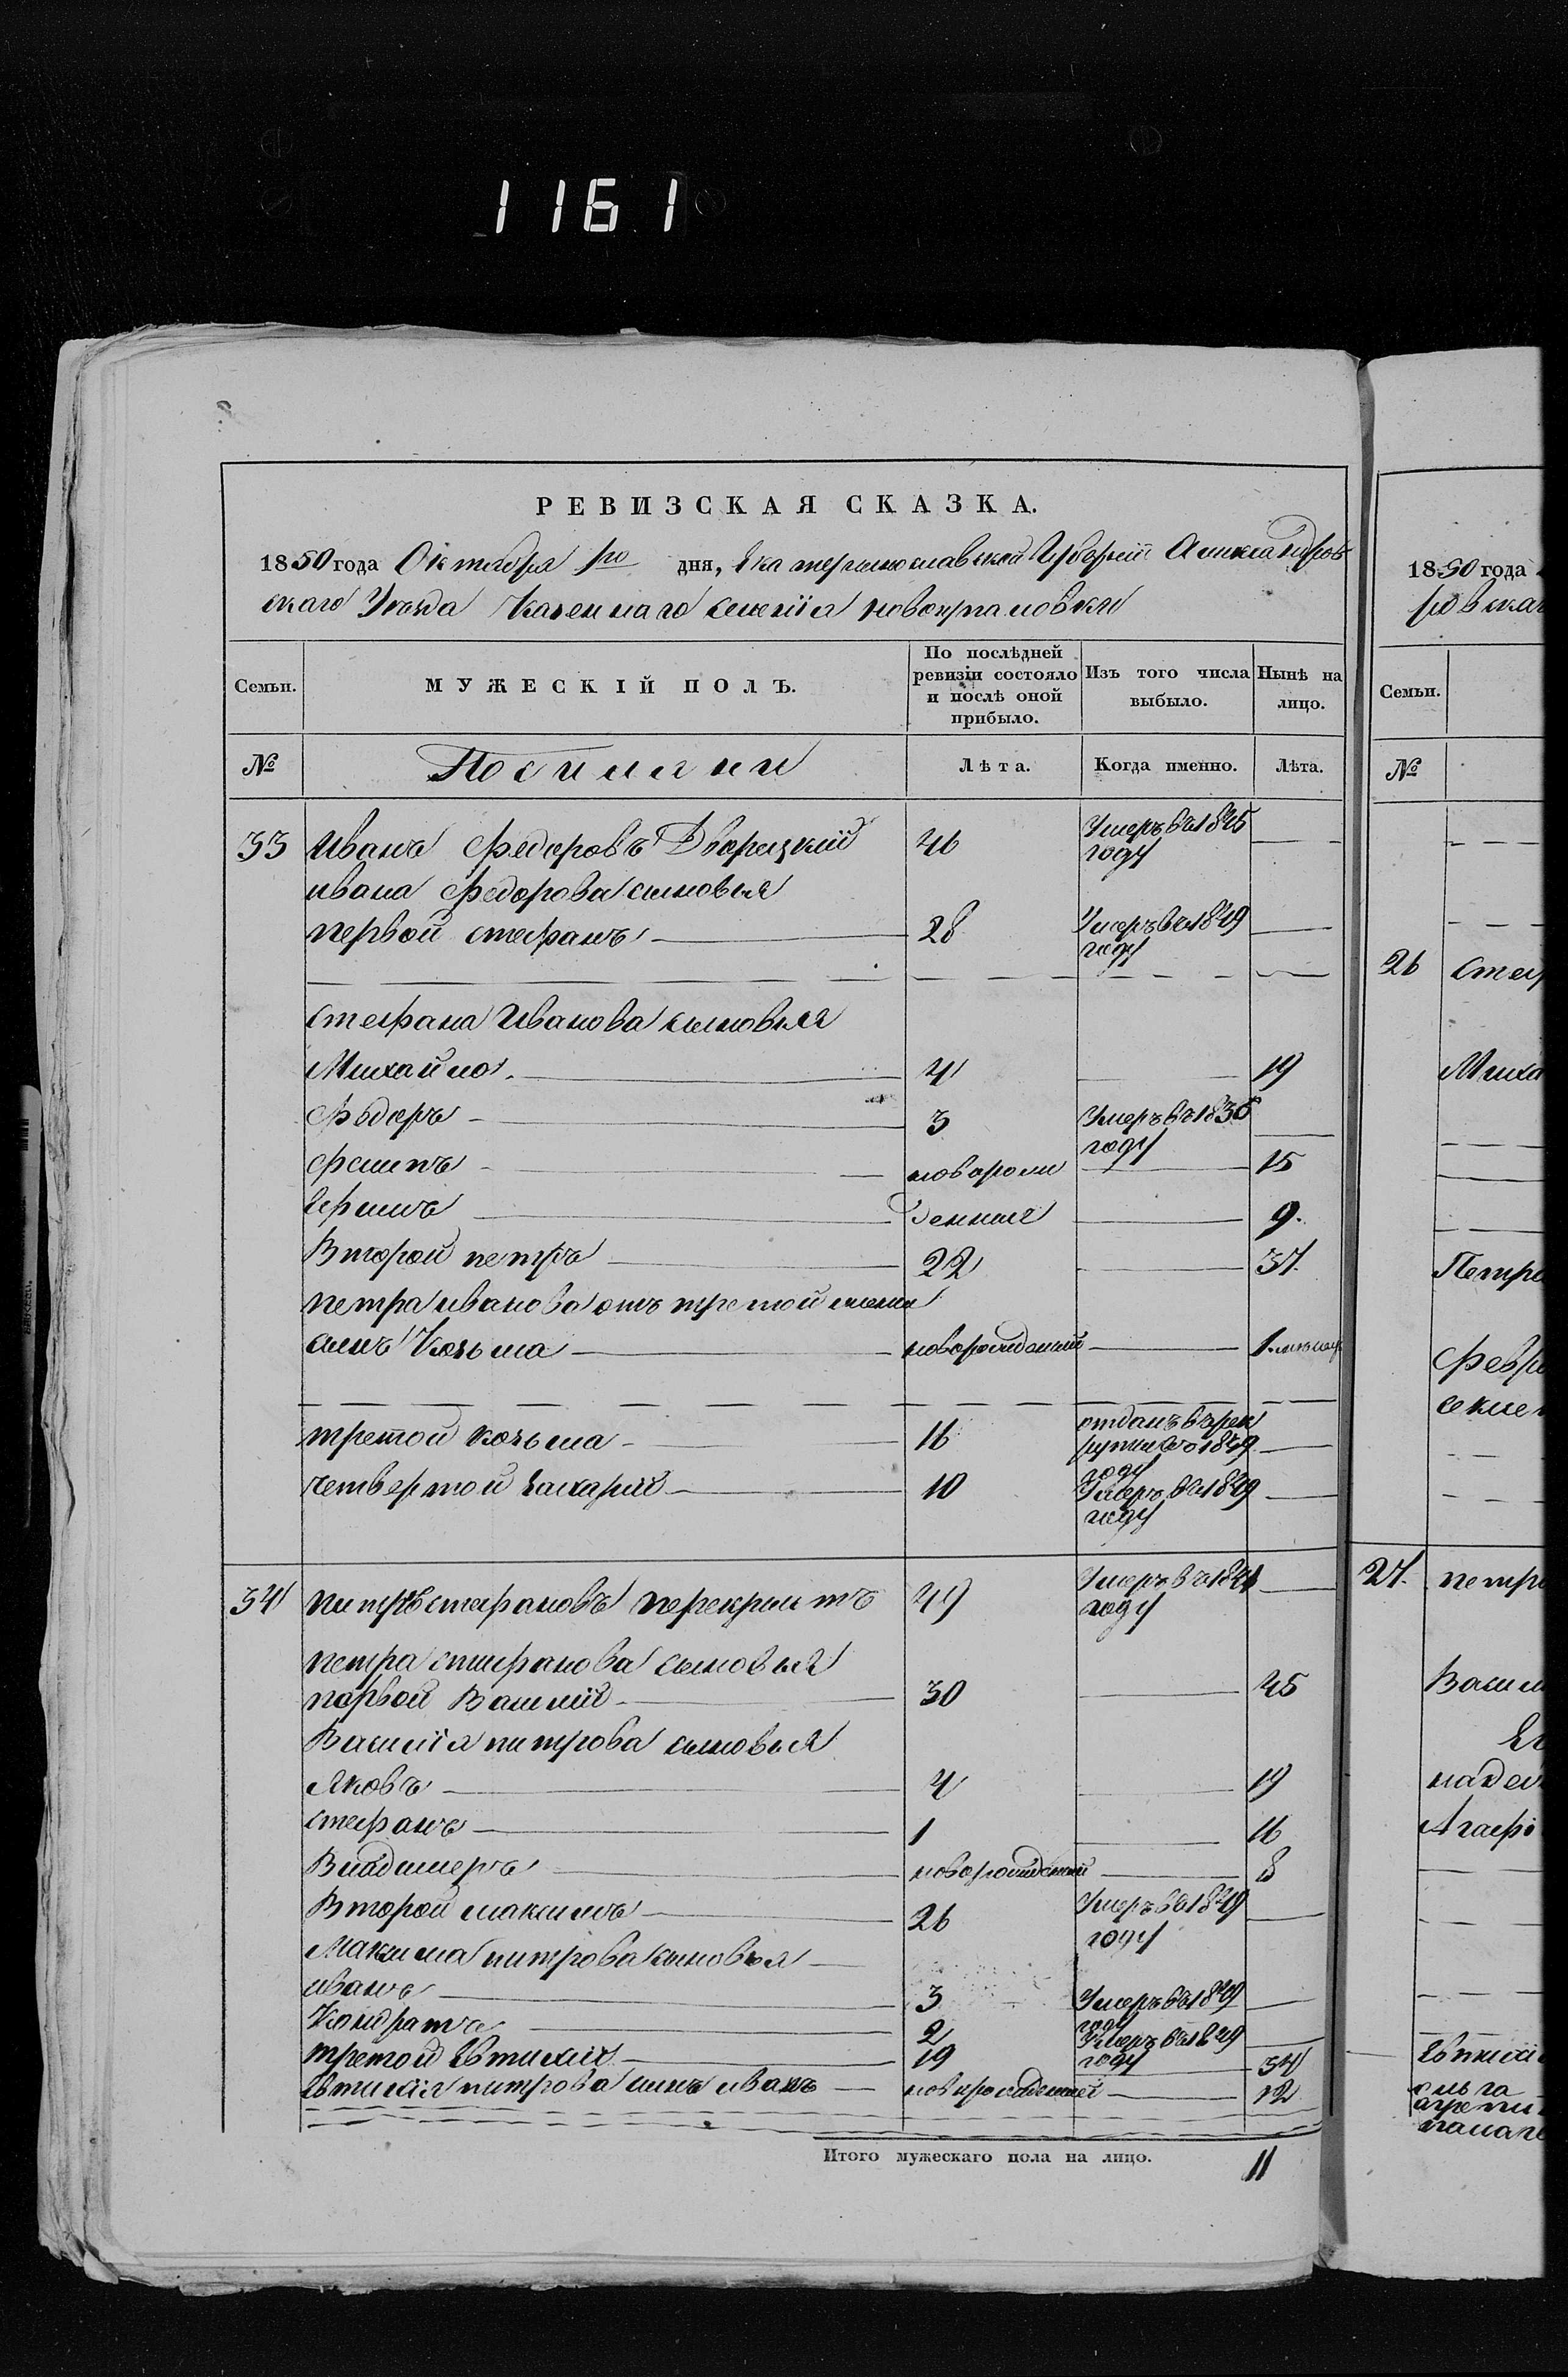 1161
РЕВИЗСКАЯ СКАЗКА.
1850 года Октября 1го дня, Екатеринославской Губернии Александров
скаго Уезда Казеннаго селенія новокрамовки
Семьи. МУЖЕСКІЙ ПОЛЪ. По послѣдней ревизіи состояло и послѣ оной прибыло. Изъ того числа выбыло. Нынѣ на лицо.
№ Поселяни Лѣта. Когда именно. Лѣта.
33 Иванъ Федоровъ Дворецкій 46 Умеръ въ 1845 году
ивана Федорова сыновья
первой стефанъ 28 Умеръ въ 1849 году
стефана Иванова сыновья
Михайло 4 19
Федоръ 3 Умеръ въ 1836 году
новорож 15
денныя 9.
Второй петръ 22 37.
петра иванова отъ третой жены
сынъ Козьма новорожденый 1.
третой козьма 16 отданъ въ рек
руты 1849 году
четвертой захарій 10 Умеръ въ 1849 году
34 петръ стефановъ перекрестъ 49 Умеръ въ 1841 году
петра стефанова сыновья
первой Василій 30 45
Василія петрова сыновья
Яковъ 4 19
стефанъ 1 16
Владимеръ новорожденый 8
Второй максимъ 26 Умеръ въ 1849 году
Максима петрова сыновья
иванъ 3 Умеръ въ 1849 году
Кондратъ 2 Умеръ въ 1849 году
третой Евтихій 19 34
Евтихія петрова сынъ иванъ новорожденый 12
Итого мужескаго пола на лицо. 11
1850 года
Семьи.
№
26
27.